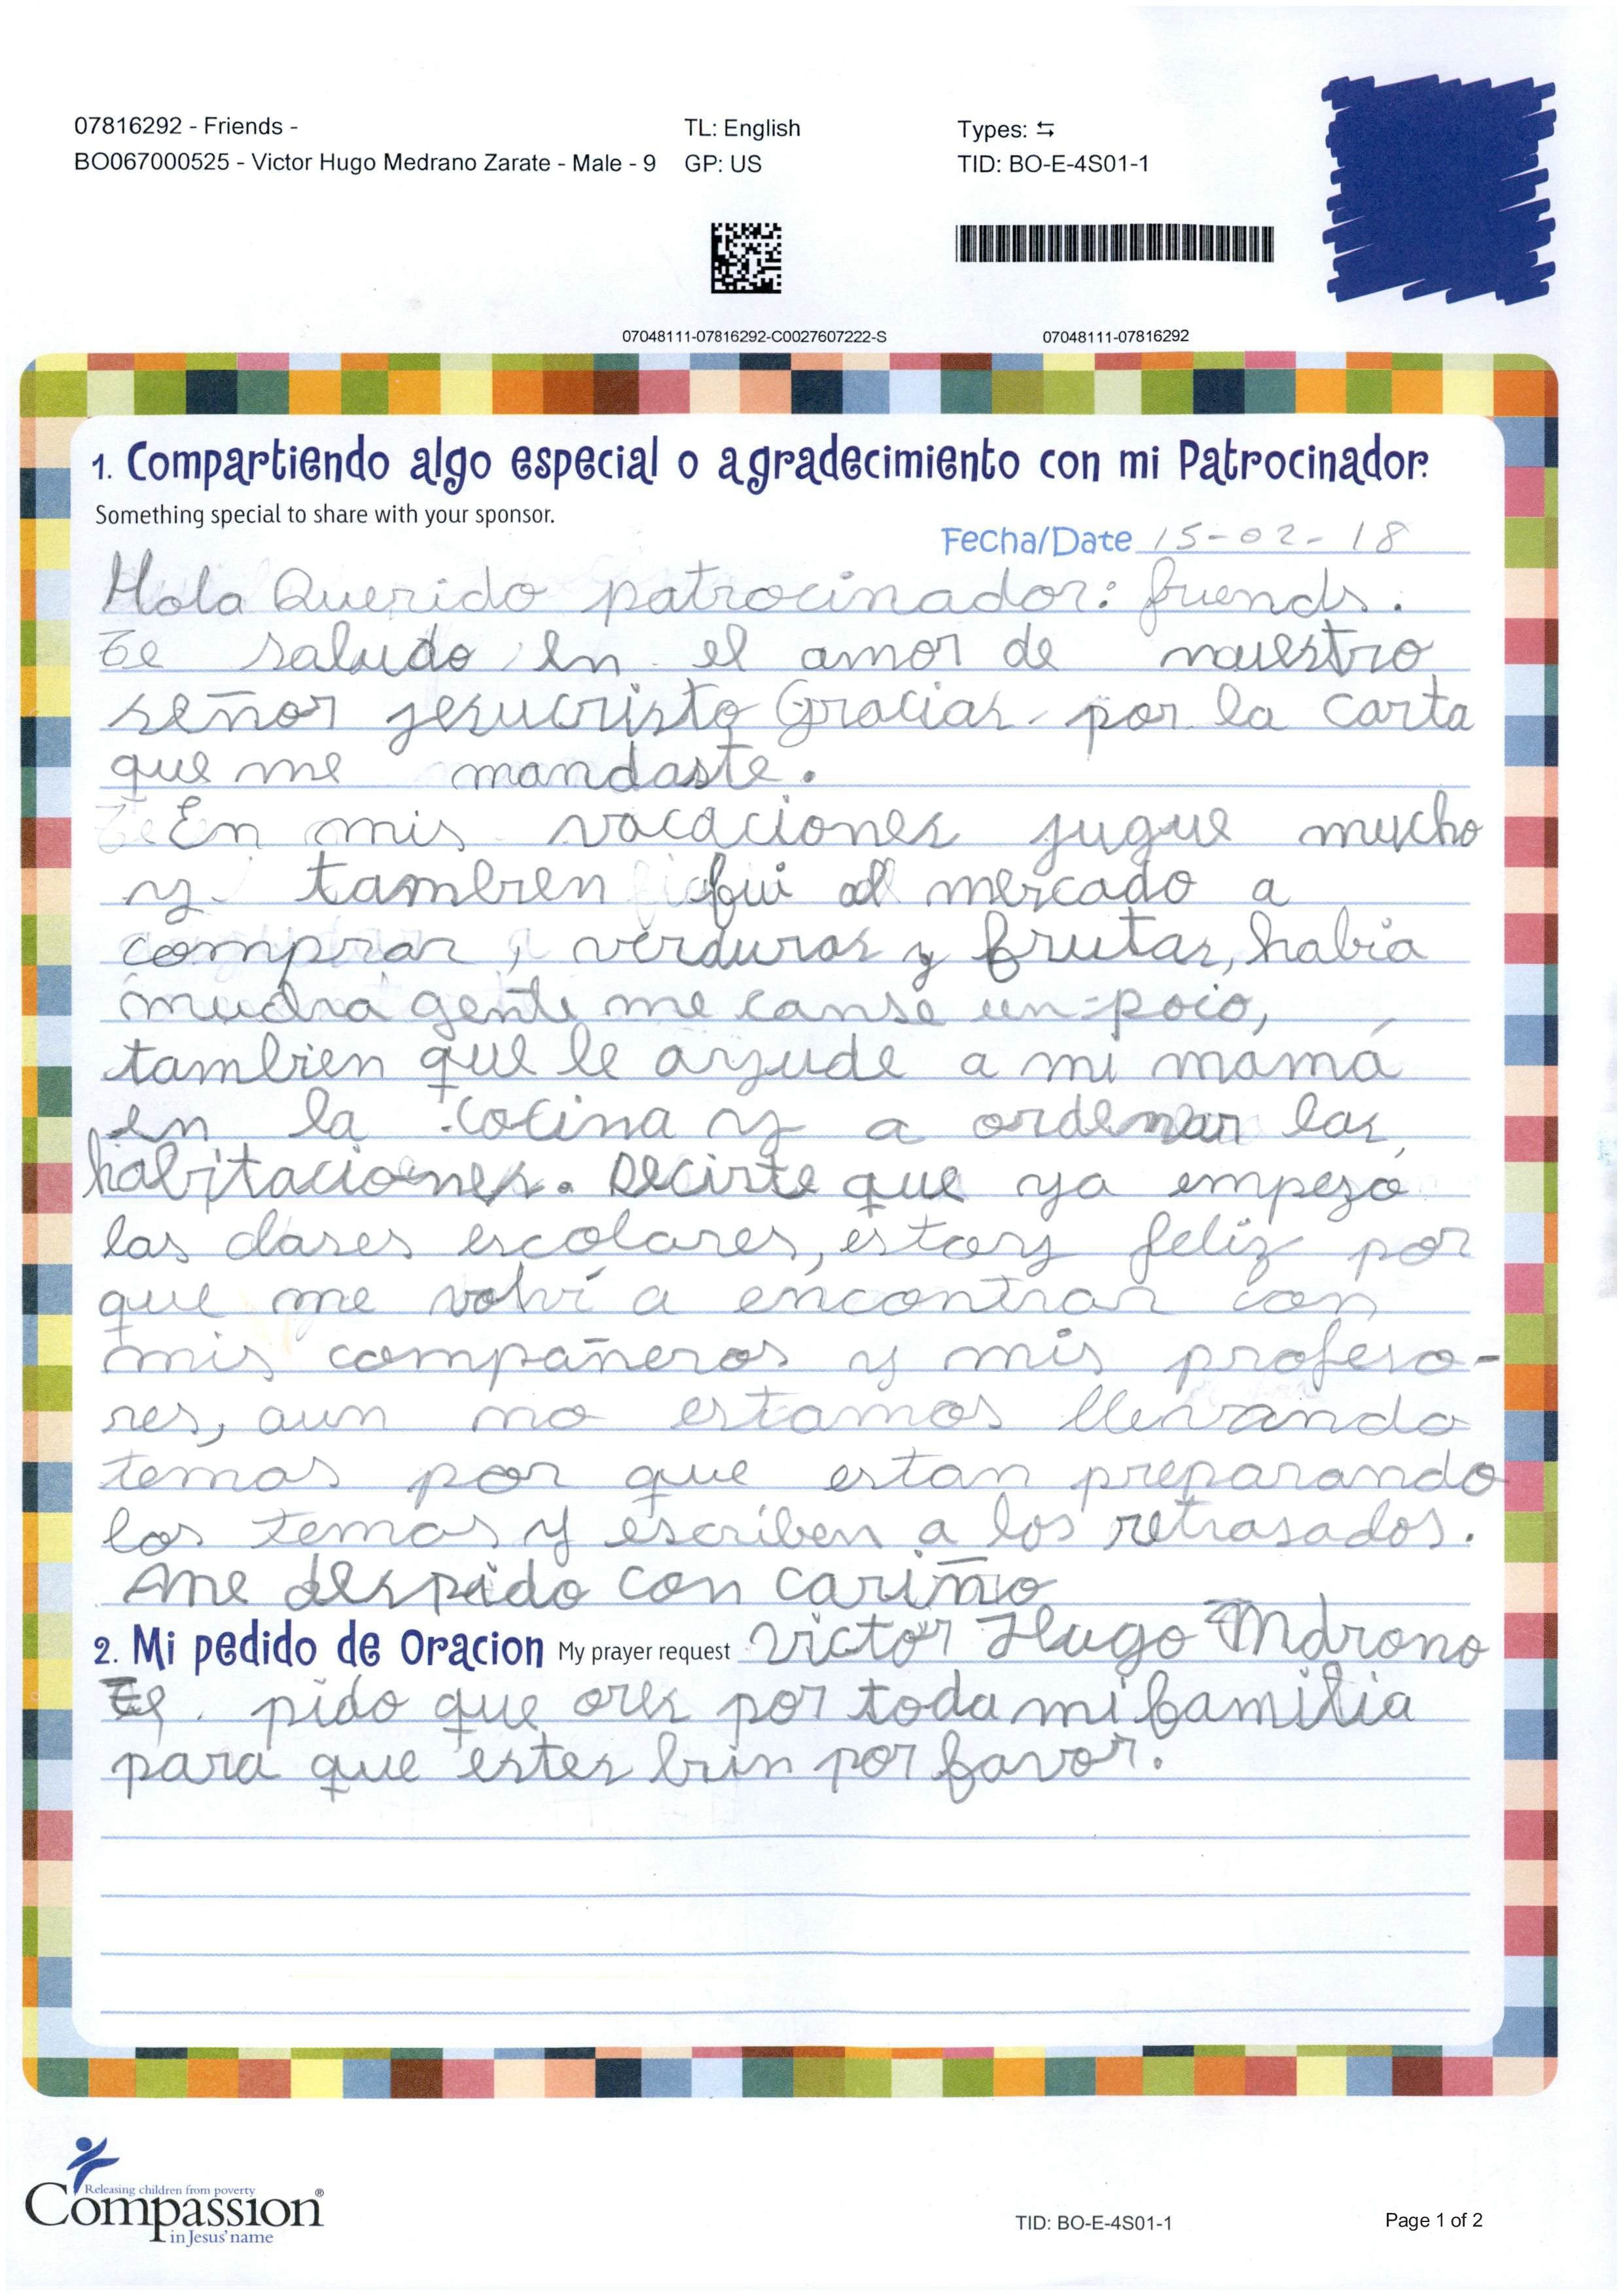 07816292 - Friends -
TL: English
Types: ⇆
BO067000525 - Victor Hugo Medrano Zarate - Male - 9
GP: US
TID: BO-E-4S01-1
07048111-07816292-C0027607222-S
07048111-07816292
1. Compartiendo algo especial o agradecimiento con mi Patrocinador.
Something special to share with your sponsor.
Fecha/Date 15-02-18
Hola Querido patrocinador: friends.
Te saludo en el amor de nuestro
señor jesucristo Gracias por la carta
que me mandaste.
En mis vacaciones jugue mucho
y tambien fui al mercado a
comprar, verduras y frutas, habia
mucha gente me canse un poco,
tambien que le ayude a mi mamá
en la cocina y a ordenar las
habitaciones. Decirte que ya empezó
las clases escolares, estoy feliz por
que me volví a encontrar con
mis compañeros y mis profeso-
res, aun no estamos llevando
temas por que estan preparando
los temas y escriben a los retrasados.
me despido con cariño
2. Mi pedido de Oracion My prayer request Victor Hugo Mdrano
Te pido que ores por toda mi familia
para que estes bien por favor.
Releasing children from poverty
Compassion®
in Jesus' name
TID: BO-E-4S01-1
Page 1 of 2